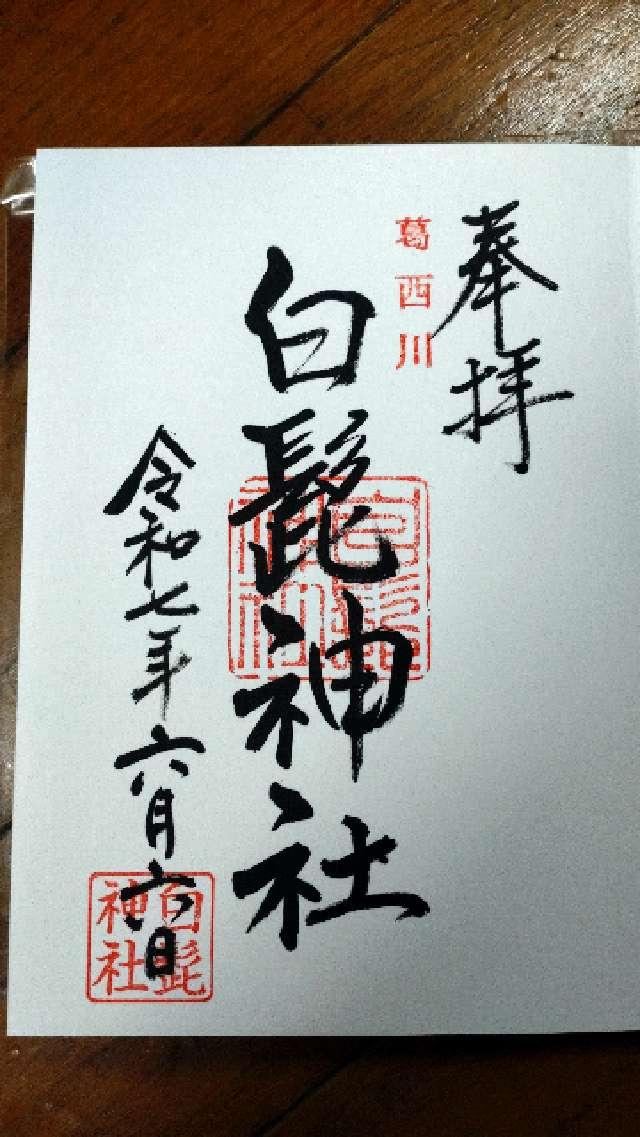 奉拝
葛西川
白髭神社
白髭神社
令和七年六月六日
白髭神社